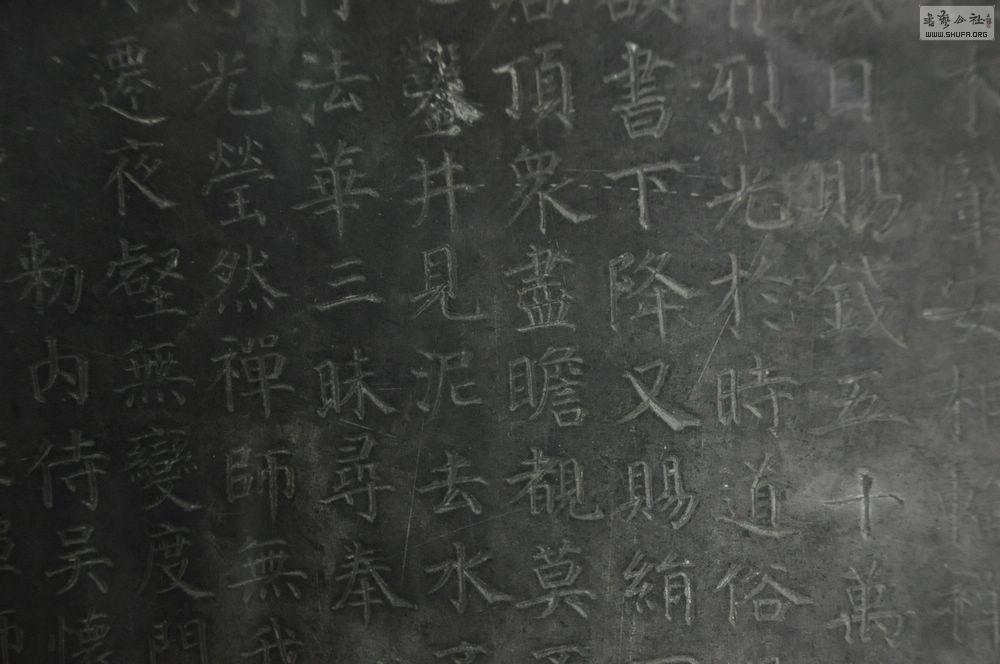 日賜錢五十萬
烈光於時道俗
書下降又賜絹
頂衆盡瞻覩莫不
鑿井見泥去水不
法華三昧尋奉
光瑩然禪師無我
遷夜壑無變度門
勑内侍吳懷
WWW.SHUFA.ORG